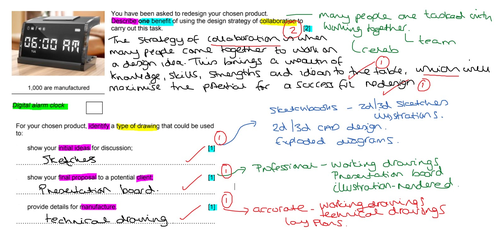 You have been asked to redesign your chosen product.
Describe one benefit of using the design strategy of collaboration to
carry out this task. [2]
2
many people one tasked with
working together.
↳ team
↳ collab
The strategy of collaboration is when
many people come together to work on
a design idea. This brings a wealth of
knowledge, skills, strengths and ideas to the table, which will
maximise the potential for a successful redesign
1
1
06:00 AM
1,000 are manufactured
Digital alarm clock
For your chosen product, identify a type of drawing that could be used
to:
show your initial ideas for discussion; [1]
Sketches
1
Sketchbooks - 2d/3d sketches
illustrations.
2d/3d CAD design.
Exploded diagrams.
show your final proposal to a potential client; [1]
Presentation board.
1
Professional - Working drawings
Presentation board
illustration-rendered.
provide details for manufacture. [1]
technical drawing
1
accurate - working drawings
technical drawings
lay plans.